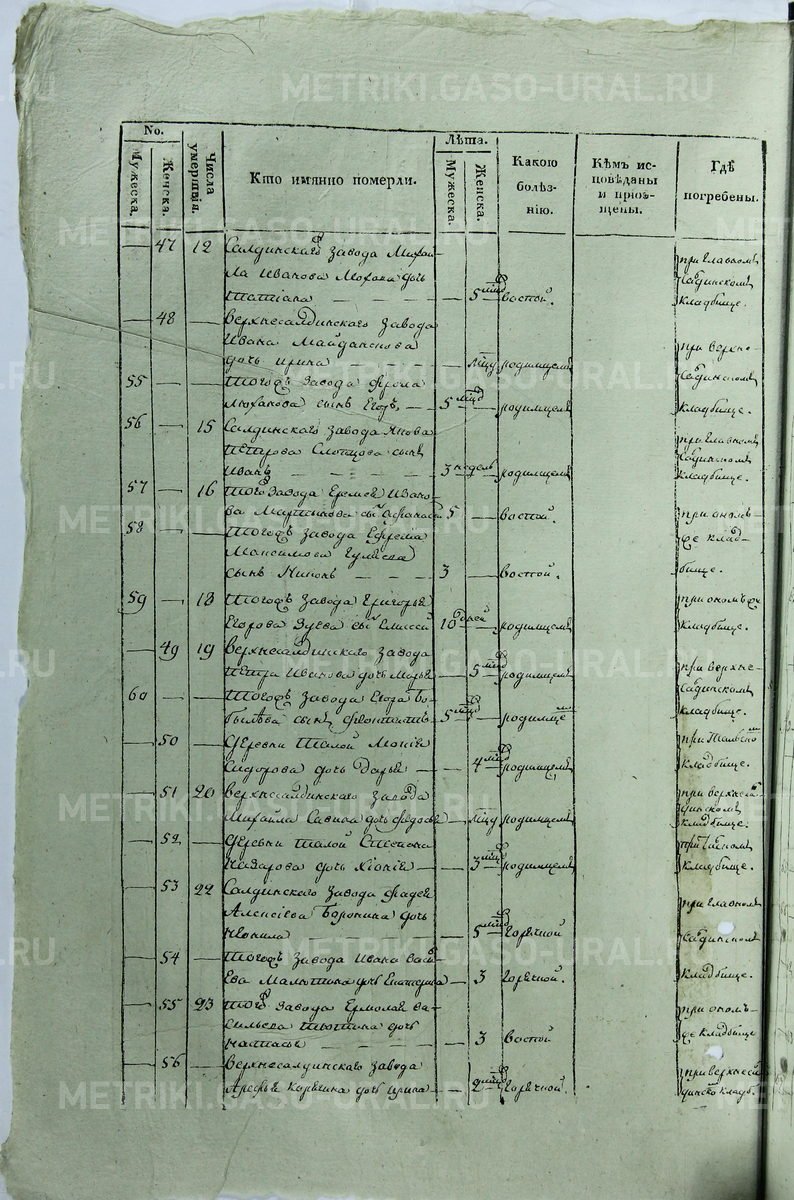 METRIKI.GASO-URAL.RU
No.
Мужеска.
Женска.
Числа умершвія.
Кто имянно померли.
Лѣта.
Мужеска.
Женска.
Какою болѣз-нію.
Кѣмъ ис-повѣданы и приоб-щены.
Гдѣ погребены.
— 47 12 Салдинскаго завода Михай-
ла Иванова Мохова дочь
Татіана — — — — 5 мцд воспой. при главномъ Салдинскомъ кладбище.
— 48 — Верхнесалдинскаго завода
Ивана Майданснова
дочь Ирина — — мцу родимцемъ при верхно-Салдинскомъ
55 — — Тогожъ завода Фрола
Моханова сынъ Егоръ, — 5 мцд — родимцемъ кладбище.
56 — 15 Салдинскаго завода Якова
Петрова Слопцова сынъ
Иванъ — — — 3 недель родимцемъ при главномъ Салдинскомъ кладбище.
57 — 16 Того завода Еремея Ивано-
ва Мартынова сы Афанасей 5 — воспой. при ономъ-
58 — — Тогожъ завода Ефрема
Максимова Гуляева
сынъ Никонъ — — — 3 — воспой. же клад-бище.
59 — 18 Тогожъ завода Григорья
Егорова Зуева сы Елисей 10 дней — родимцемъ при ономъ же кладбище.
— 49 19 Верхнесалдинскаго завода
Петра Иванова дочь Марья — 5 мцд родимцемъ при верхне-Салдинскомъ
60 — — Тогожъ завода Егора Бо-
былѣва сынъ 5 мцд — родимце кладбище.
— 50 — Деревни Талой
Сидорова дочь Дарья — — 4 мцд родимцемъ при кладбище.
— 51 20 Верхнесалдинскаго завода
Михайла Савина дочь Федосья — мцу родимцемъ при верхнесал-динскомъ кладбище.
— 52 — Деревни Талой Степана
Назарова дочь Хіонія — — 3 мцд родимцемъ при кладбище.
— 53 22 Салдинскаго завода Фадея
Алексіева Воронина дочь
Неонила — 5 мцд Горячкой при главномъ Салдинскомъ
— 54 — Тогожъ завода Ивана Васи-
Ева Малютина дочь Екатерина — 3 Горячкой. кладбище.
— 55 23 Того завода Ермолая Ва-
сильева Тютина дочь
Настасья — — — 3 воспой при ономъ-же кладбище
— 56 — Верхнесалдинскаго завода
Арефья Корѣлина дочь Ирина — 2 мцд Горячкой. при верхнесал-динско кладб.